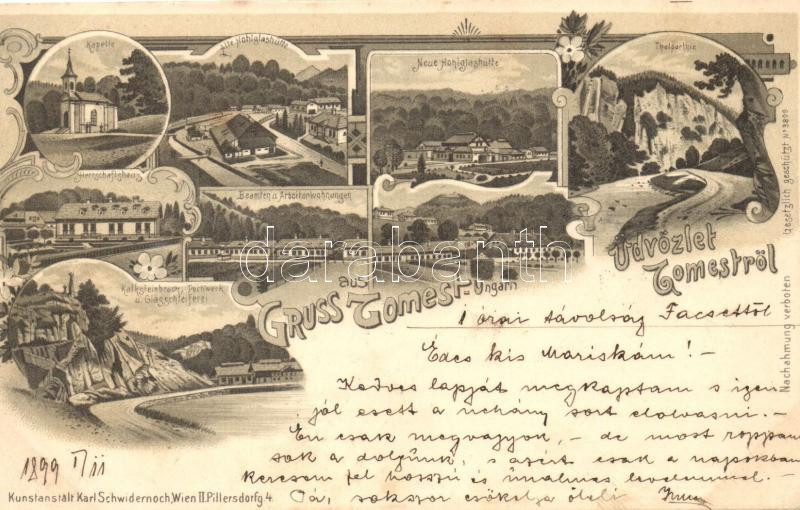 Kapelle
Alte Hohlglashütte
Neue Hohlglashütte
Thalparthie
Herrschaftshaus
Beamten u. Arbeiterwohnungen
Kalksteinbruch, Pochwerk
u. Glasschleiferei
GRUSS aus Tomest-Ungarn
Üdvözlet
Tomestről
Nachahmung verboten - Gesetzlich geschützt No 3899
darabanth
auctions
1 órai távolság Facsettől
Édes kis Mariskám! -
Kedves lapját megkaptam s igen
jól esett a néhány sort elolvasni. -
Én csak megvagyok, - de most roppan
sok a dolgunk, s azért csak a napokban
keresem fel hosszú és unalmas levelemmel. -
Pá, sokszor csókolja öleli
1899 I/11
Kunstanstalt Karl Schwidernoch, Wien II. Pillersdorfg. 4.